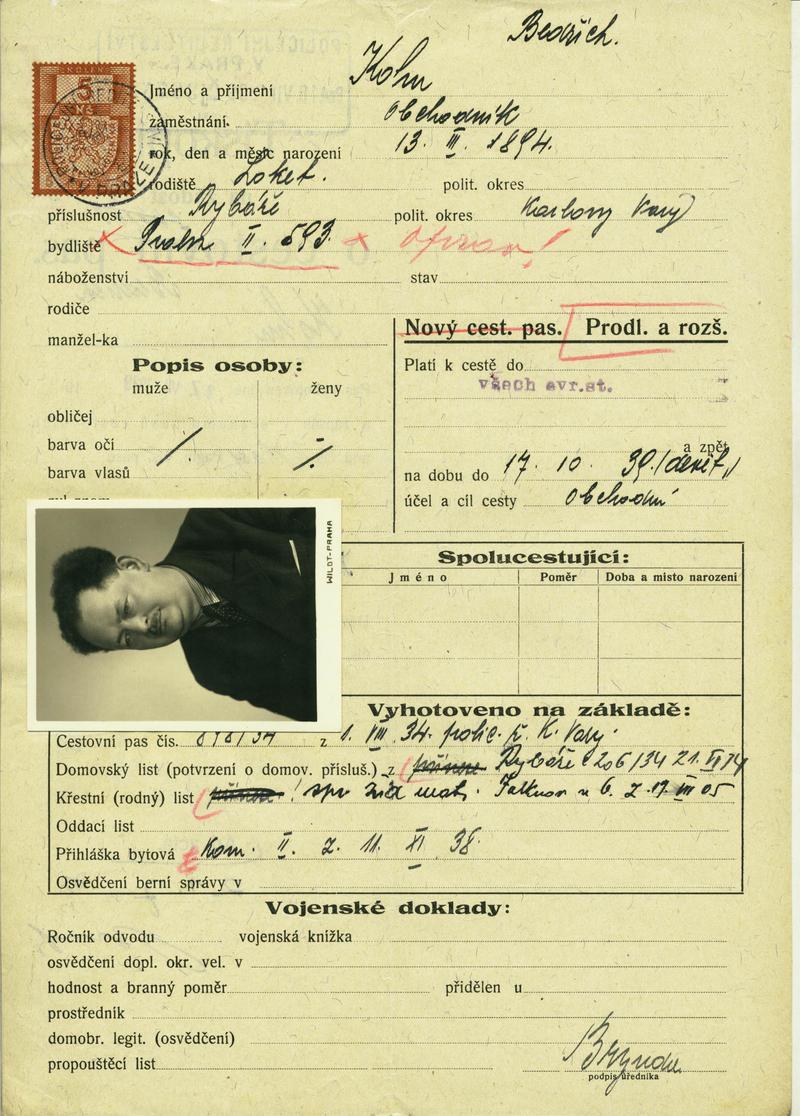 Bedřich.
Jméno a příjmení Kohn
zaměstnání. Obchodník
rok, den a měsíc narození 13. III. 1894.
rodiště Loket. polit. okres
příslušnost Rybáře polit. okres Karlovy Vary
bydliště Praha II. 593.
náboženství stav
rodiče
manžel-ka
Nový cest. pas. Prodl. a rozš.
Platí k cestě do
všech evr.st.
a zpět
na dobu do 17. 10. 39. (devět)
účel a cíl cesty Obchodní
Popis osoby:
muže ženy
obličej
barva očí
barva vlasů
WILDT-PRAHA
Spolucestující:
Jméno Poměr Doba a misto narozeni
Vyhotoveno na základě:
Cestovní pas čís. 898/34 z 1. VIII. 34. polic. ř. K. Vary.
Domovský list (potvrzení o domov. přísluš.) z Rybáře 206/34 21. VI 34
Křestní (rodný) list mat. Falknov n 6. z. 19. III 05
Oddací list
Přihláška bytová Kom. II. z. 11. XI 38.
Osvědčení berní správy v
Vojenské doklady:
Ročník odvodu vojenská knížka
osvědčení dopl. okr. vel. v
hodnost a branný poměr přidělen u
prostředník
domobr. legit. (osvědčení)
propouštěcí list
podpis úředníka